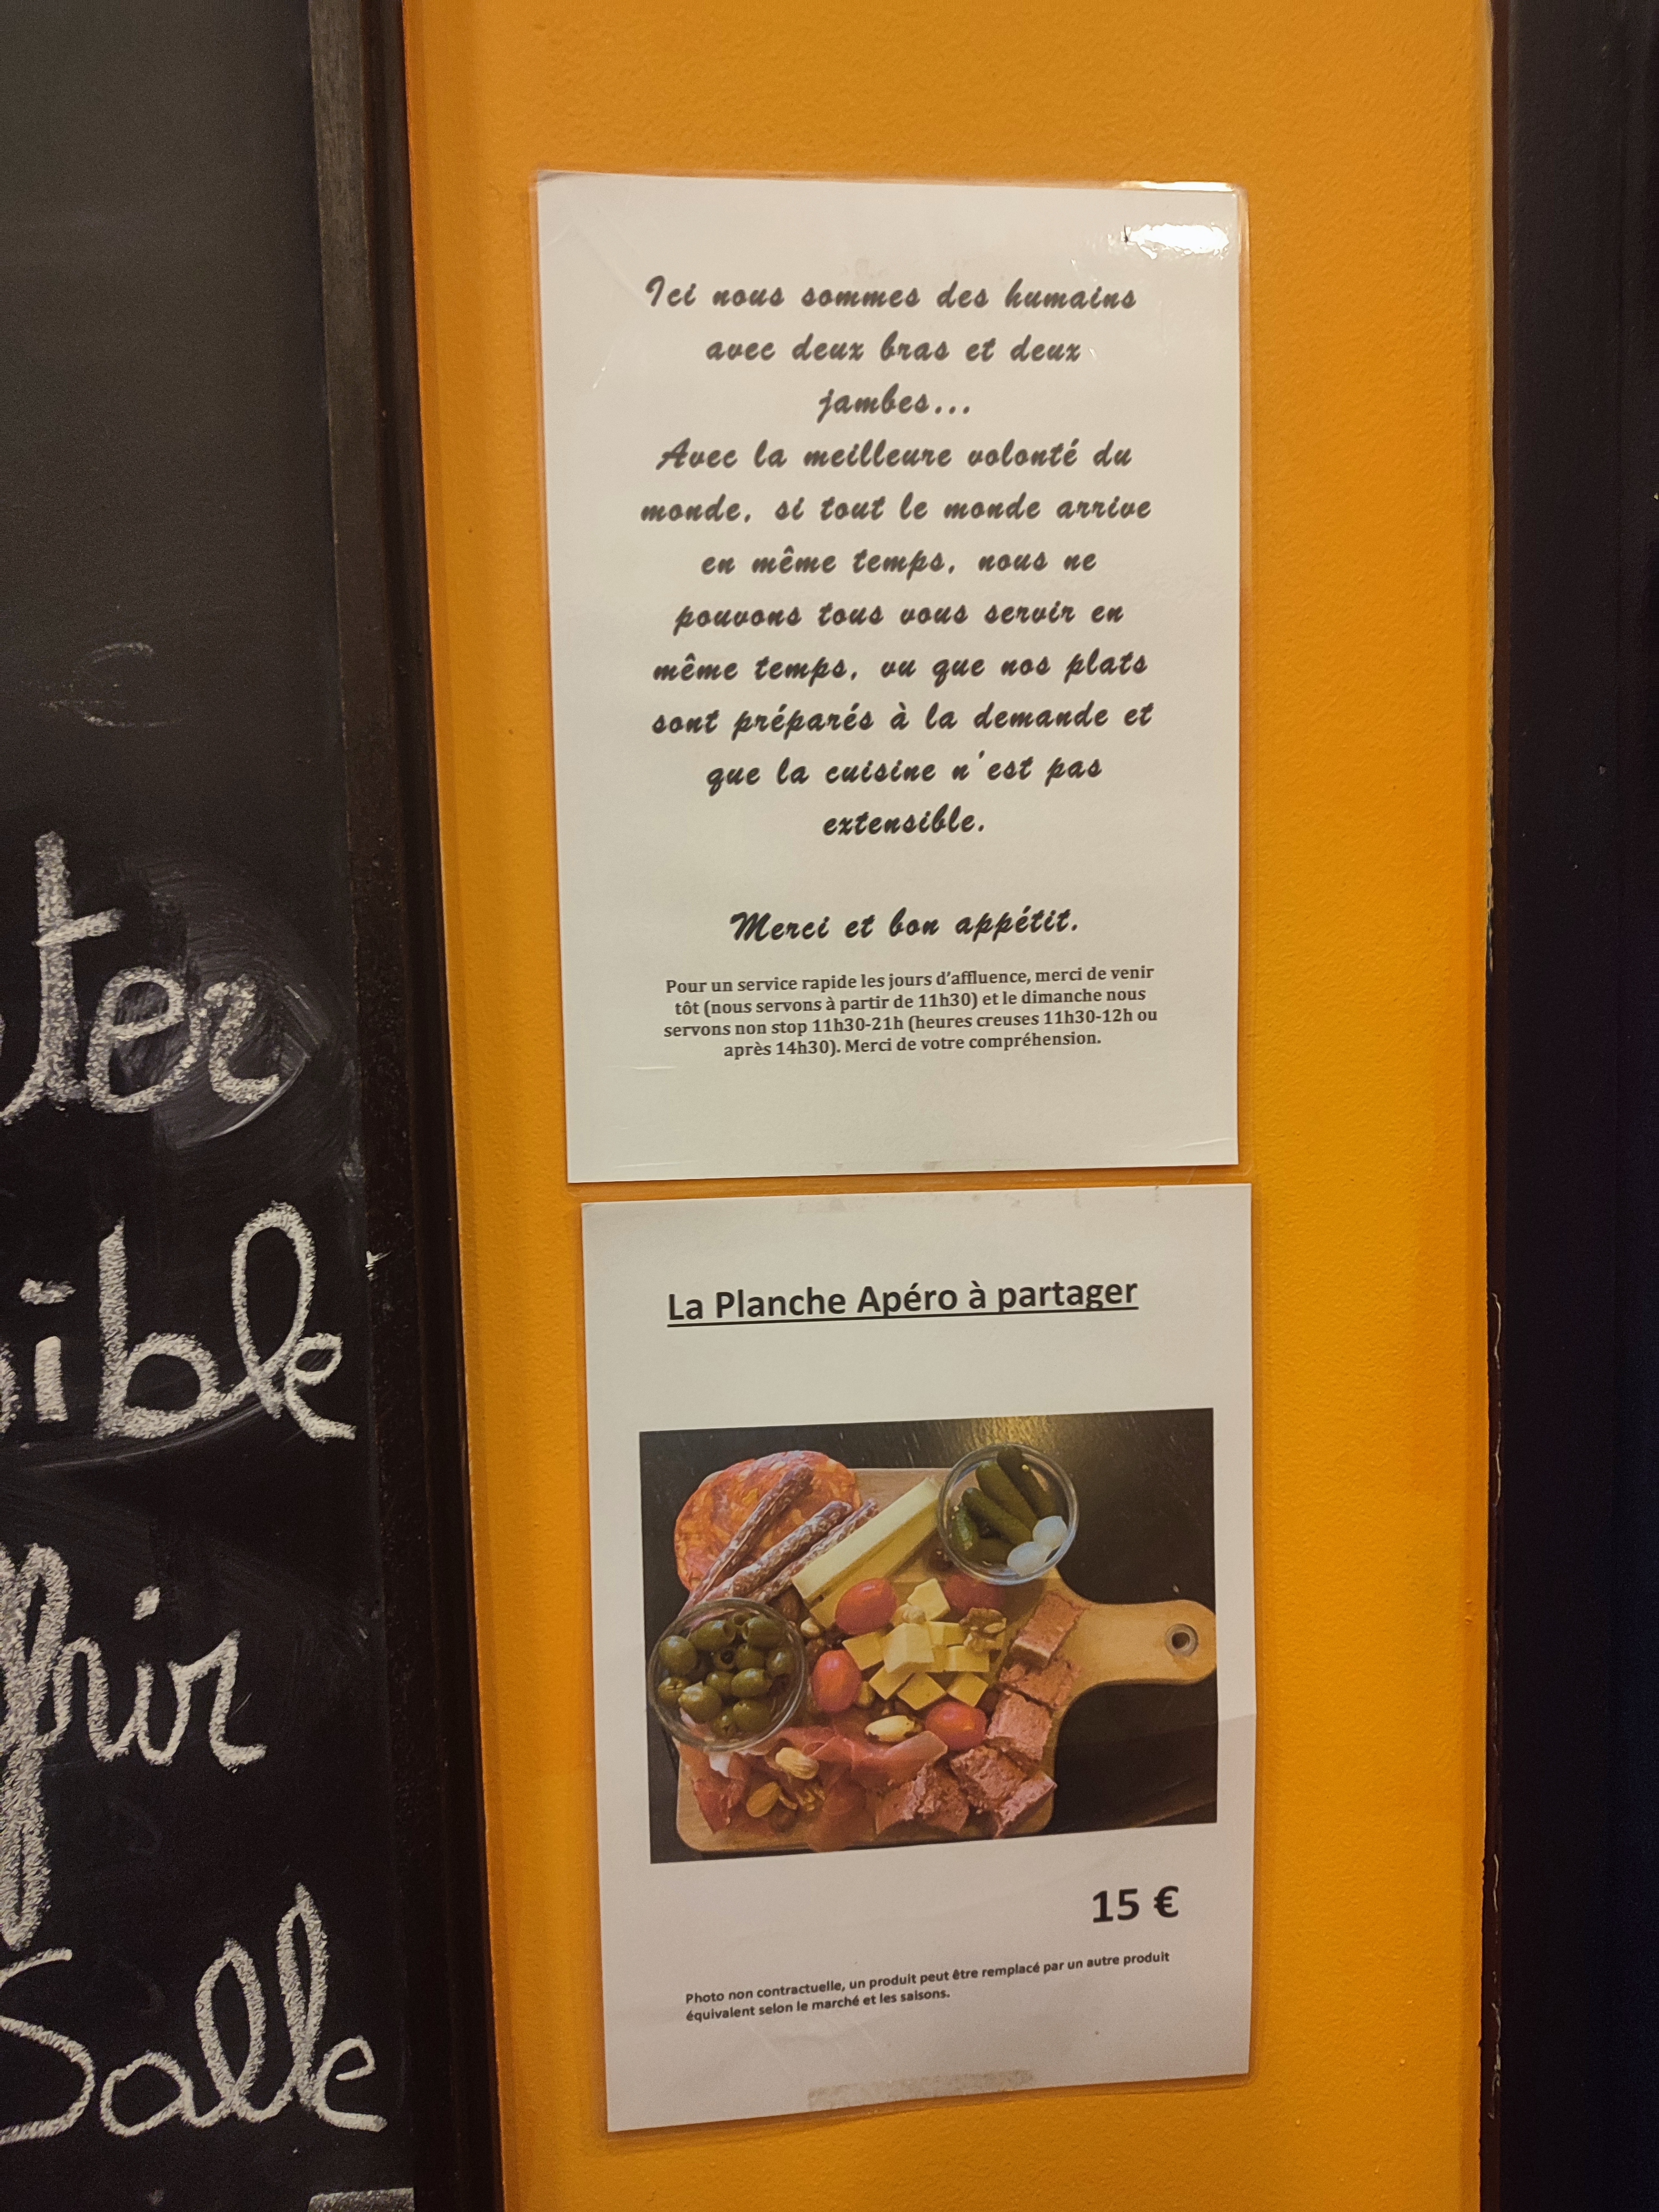 Ici nous sommes des humains
avec deux bras et deux
jambes...
Avec la meilleure volonté du
monde, si tout le monde arrive
en même temps, nous ne
pouvons tous vous servir en
même temps, vu que nos plats
sont préparés à la demande et
que la cuisine n'est pas
extensible.
Merci et bon appétit.
Pour un service rapide les jours d'affluence, merci de venir
tôt (nous servons à partir de 11h30) et le dimanche nous
servons non stop 11h30-21h (heures creuses 11h30-12h ou
après 14h30). Merci de votre compréhension.
La Planche Apéro à partager
15 €
Photo non contractuelle, un produit peut être remplacé par un autre produit
équivalent selon le marché et les saisons.
€
Salle